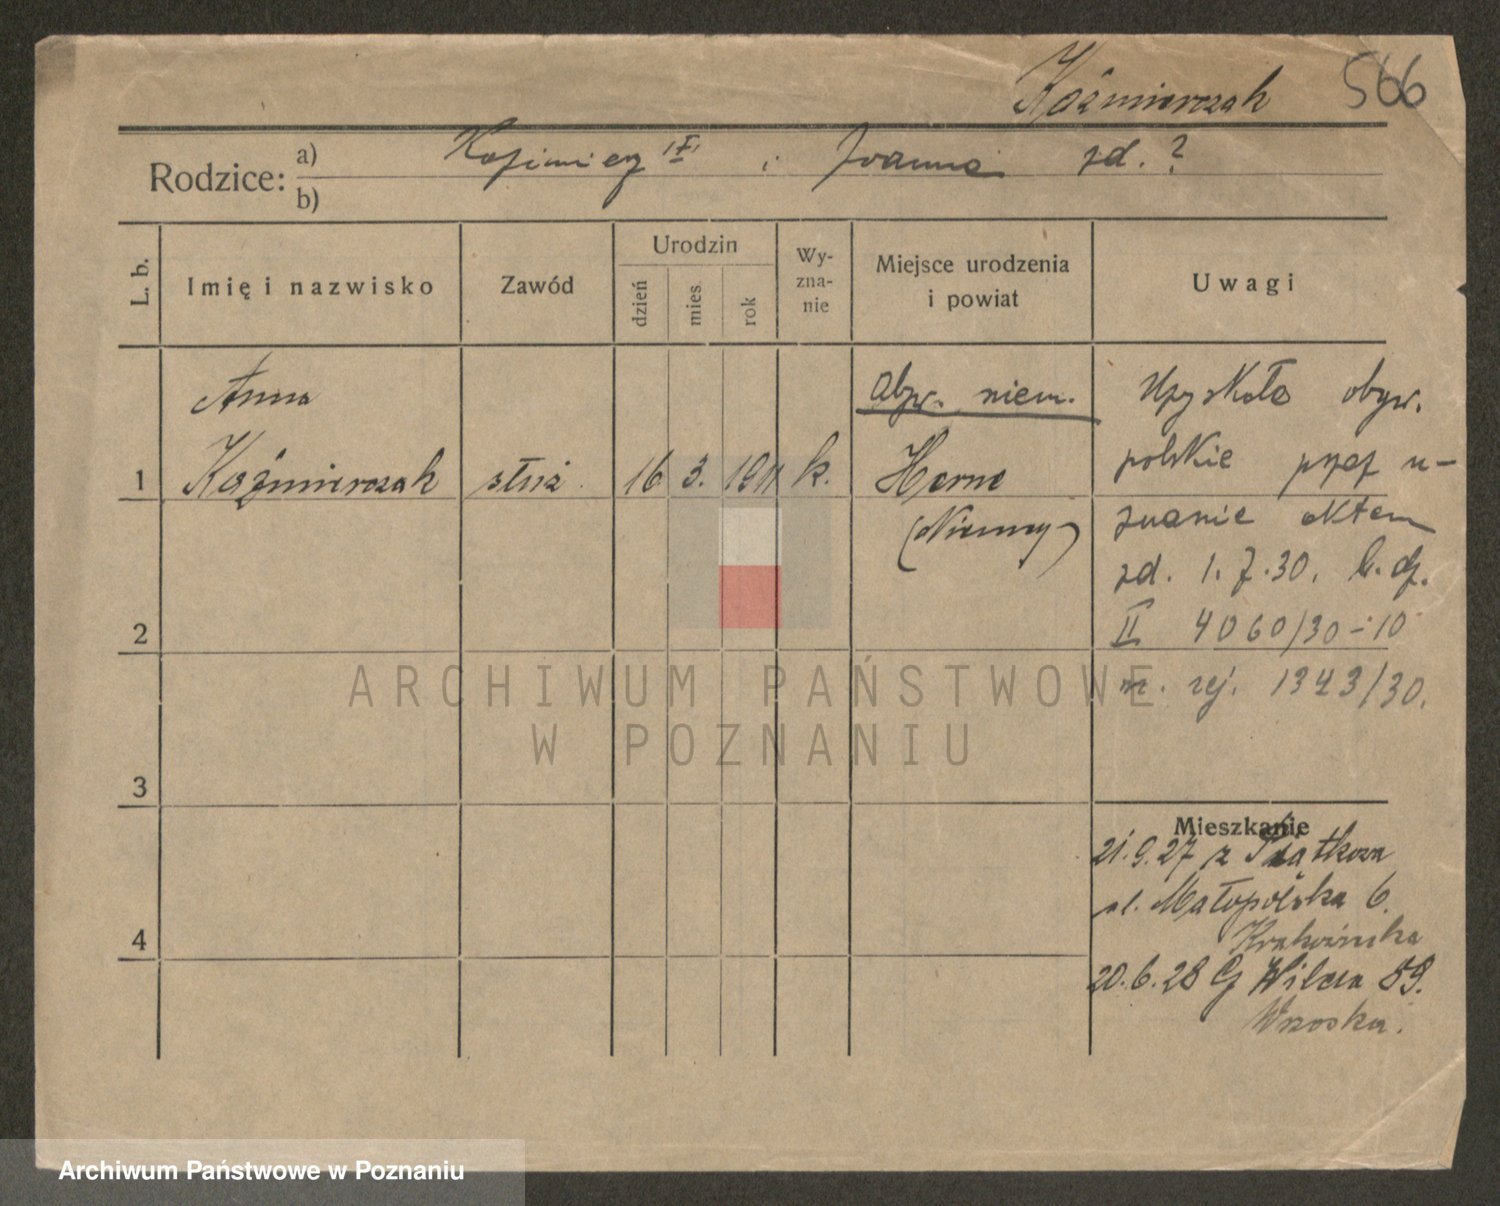 Kaźmierczak 566
Rodzice: a) Kazimierz i Joanna zd. ?
b)
L. b.
Imię i nazwisko
Zawód
Urodzin
dzień
mies.
rok
Wy-
zna-
nie
Miejsce urodzenia
i powiat
Uwagi
Anna
1 Kaźmierczak służ. 16 3. 1911 k.
Obyw. niem.
Herne
(Niemcy)
Uzyskała obyw.
polskie przez u-
znanie aktem
zd. 1.7.30. L. dz.
II 4060/30-10
n. rej. 1343/30.
2
3
4
Mieszkanie
21.9.27 z Piątkowa
ul. Małopolska 6.
20.6.28 G Wilda 59.
Wzoska.
ARCHIWUM PAŃSTWOWE
W POZNANIU
Archiwum Państwowe w Poznaniu